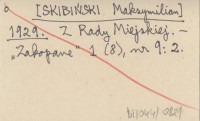 [SKIBIŃSKI Maksymilian]
1929. Z Rady Miejskiej. —
„Zakopane" 1 (8), nr 9: 2.